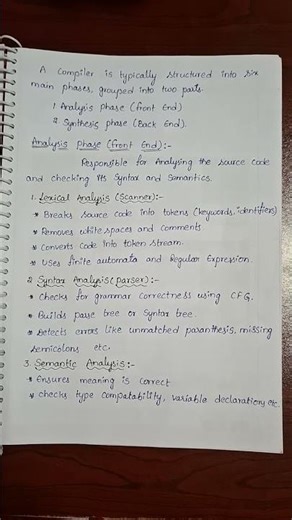 A Compiler is typically structured into six
main phases, grouped into two parts.
1 Analysis phase (front End)
2 Synthesis phase (Back End).
Analysis phase (front End):-
Responsible for Analysing the source code
and checking its Syntax and Semantics.
1. Lexical Analysis (Scanner):-
* Breaks source code into tokens (keywords, identifiers)
* Removes white spaces and comments
* Converts Code into token stream.
* Uses finite automata and Regular Expression.
2 Syntax Analysis (parser):-
* Checks for grammar correctness using CFG.
* Builds parse tree or Syntax tree.
* Detects errors like unmatched paranthesis, missing
semicolons etc.
3. Semantic Analysis:-
* Ensures meaning is correct
* checks type compatability, variable declaration, etc.